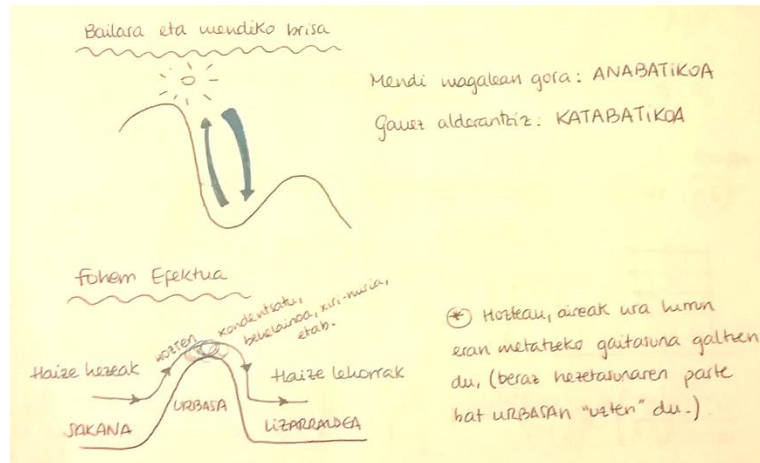 Bailara eta mendiko brisa
Mendi magalean gora: ANABATIKOA
Gauez alderantziz: KATABATIKOA
Fohem Efektua
Haize hezeak
hozten
kondentsatu,
behelainoa, xiri-miria,
etab.
Haize lehorrak
SAKANA
URBASA
LIZARRALDEA
* Hoztean, aireak ura lurrun
eran metatzeko gaitasuna galtzen
du, (beraz hezetasunaren parte
bat URBASAN "uzten" du.)